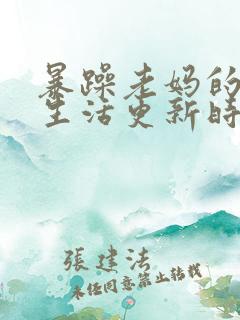 暴躁老妈的
生活更新时
張建法
未经同意禁止转载